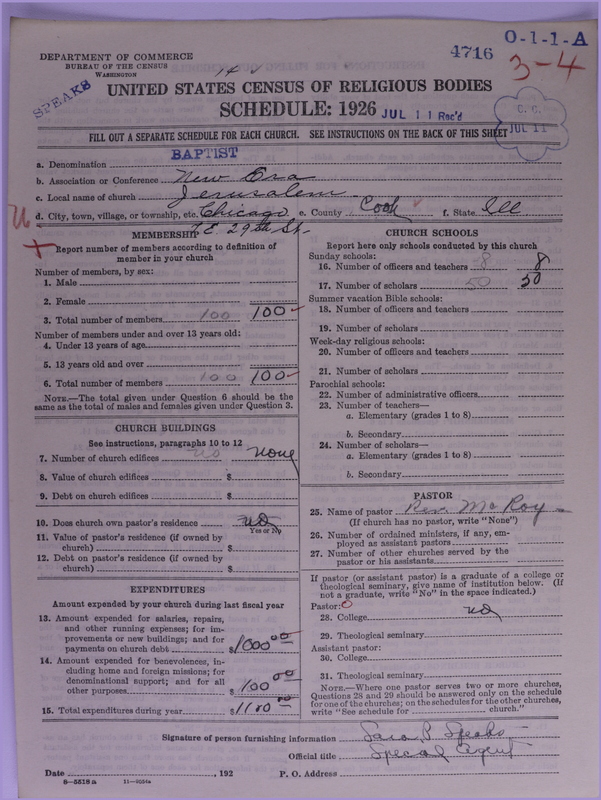 DEPARTMENT OF COMMERCE
BUREAU OF THE CENSUS
WASHINGTON
4716
O-1-1-A
3-4
SPEAKS
UNITED STATES CENSUS OF RELIGIOUS BODIES
SCHEDULE: 1926
JUL 11 Rec'd
C. C.
JUL 11
FILL OUT A SEPARATE SCHEDULE FOR EACH CHURCH. SEE INSTRUCTIONS ON THE BACK OF THIS SHEET
a. Denomination BAPTIST
b. Association or Conference New Era
c. Local name of church Jerusalem
d. City, town, village, or township, etc. Chicago e. County Cook f. State Ill
E. 29th St.
MEMBERSHIP
Report number of members according to definition of
member in your church
Number of members, by sex:
1. Male
2. Female
3. Total number of members 100 100
Number of members under and over 13 years old:
4. Under 13 years of age
5. 13 years old and over
6. Total number of members 100 100
NOTE.—The total given under Question 6 should be the
same as the total of males and females given under Question 3.
CHURCH BUILDINGS
See instructions, paragraphs 10 to 12
7. Number of church edifices no none
8. Value of church edifices $
9. Debt on church edifices $
10. Does church own pastor's residence no
Yes or No
11. Value of pastor's residence (if owned by
church) $
12. Debt on pastor's residence (if owned by
church) $
EXPENDITURES
Amount expended by your church during last fiscal year
13. Amount expended for salaries, repairs,
and other running expenses; for im-
provements or new buildings; and for
payments on church debt $1000 00
14. Amount expended for benevolences, in-
cluding home and foreign missions; for
denominational support; and for all
other purposes $100 00
15. Total expenditures during year $1100 00
CHURCH SCHOOLS
Report here only schools conducted by this church
Sunday schools:
16. Number of officers and teachers 8 8
17. Number of scholars 50 50
Summer vacation Bible schools:
18. Number of officers and teachers
19. Number of scholars
Week-day religious schools:
20. Number of officers and teachers
21. Number of scholars
Parochial schools:
22. Number of administrative officers
23. Number of teachers—
a. Elementary (grades 1 to 8)
b. Secondary
24. Number of scholars—
a. Elementary (grades 1 to 8)
b. Secondary
PASTOR
25. Name of pastor Rev. McRoy
(If church has no pastor, write "None")
26. Number of ordained ministers, if any, em-
ployed as assistant pastors
27. Number of other churches served by the
pastor or his assistants
If pastor (or assistant pastor) is a graduate of a college or
theological seminary, give name of institution below. (If
not a graduate, write "No" in the space indicated.)
Pastor:
28. College no
29. Theological seminary
Assistant pastor:
30. College
31. Theological seminary
NOTE.—Where one pastor serves two or more churches,
Questions 28 and 29 should be answered only on the schedule
for one of the churches; on the schedules for the other churches,
write "See schedule for church."
Signature of person furnishing information Sara B. Speaks
Official title Special Agent
Date , 192 P. O. Address
8-5518 a 11-9254a